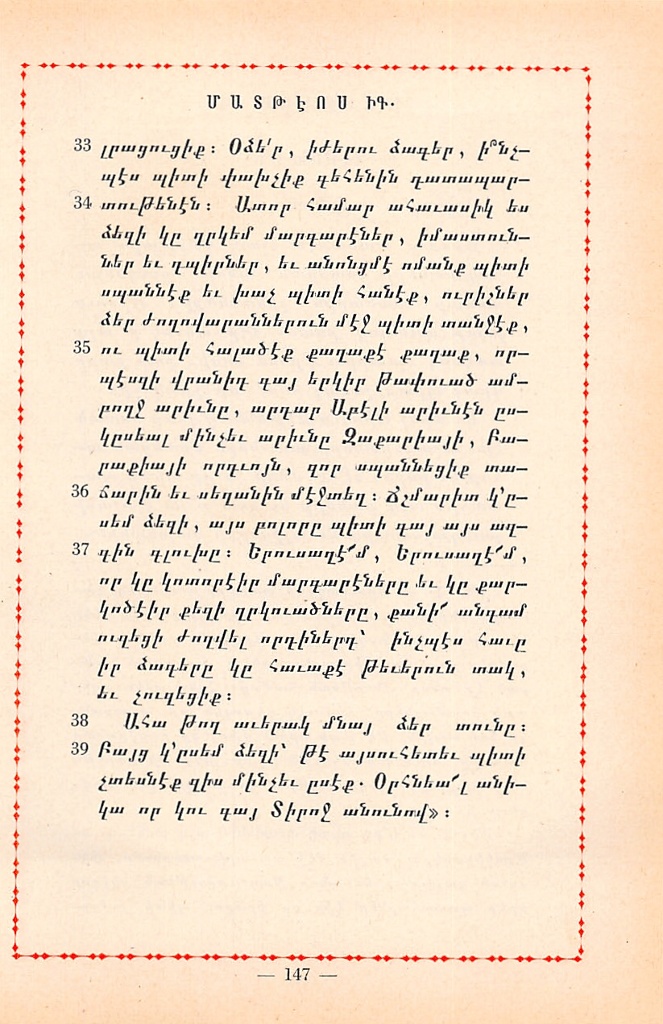 ՄԱՏԹԷՈՍ ԻԳ.
33 լրացուցիք: Օձե՛ր, իժերու ձագեր, ի՞նչ–
պէս պիտի փախչիք գեհենին դատապար–
34 տութենէն: Ատոր համար ահաւասիկ ես
ձեզի կը ղրկեմ մարգարէներ, իմաստուն–
ներ եւ դպիրներ, եւ անոնցմէ ոմանք պիտի
սպաննէք եւ խաչ պիտի հանէք, ուրիշներ
ձեր ժողովարաններուն մէջ պիտի տանջէք,
35 ու պիտի հալածէք քաղաքէ քաղաք, որ–
պէսզի վրանիդ գայ երկիր թափուած ամ–
բողջ արիւնը, արդար Աբէլի արիւնէն ըս–
կըսեալ մինչեւ արիւնը Զաքարիայի, Բա–
րաքիայի որդւոյն, զոր սպաննեցիք տա–
36 ճարին եւ սեղանին մէջտեղ: Ճշմարիտ կ՚ը–
սեմ ձեզի, այս բոլորը պիտի գայ այս ազ–
37 գին գլուխը: Երուսաղէ՜մ, Երուսաղէ՜մ,
որ կը կոտորէիր մարգարէները եւ կը քար–
կոծէիր քեզի ղրկուածները, քանի՜ անգամ
ուզեցի ժողվել որդիներդ՝ ինչպէս հաւը
իր ձագերը կը հաւաքէ թեւերուն տակ,
եւ չուզեցիք:
38 Ահա թող աւերակ մնայ ձեր տունը:
39 Բայց կ՚ըսեմ ձեզի՝ թէ այսուհետեւ պիտի
չտեսնէք զիս մինչեւ ըսէք. Օրհնեա՜լ անի–
կա որ կու գայ Տիրոջ անունով»:
— 147 —